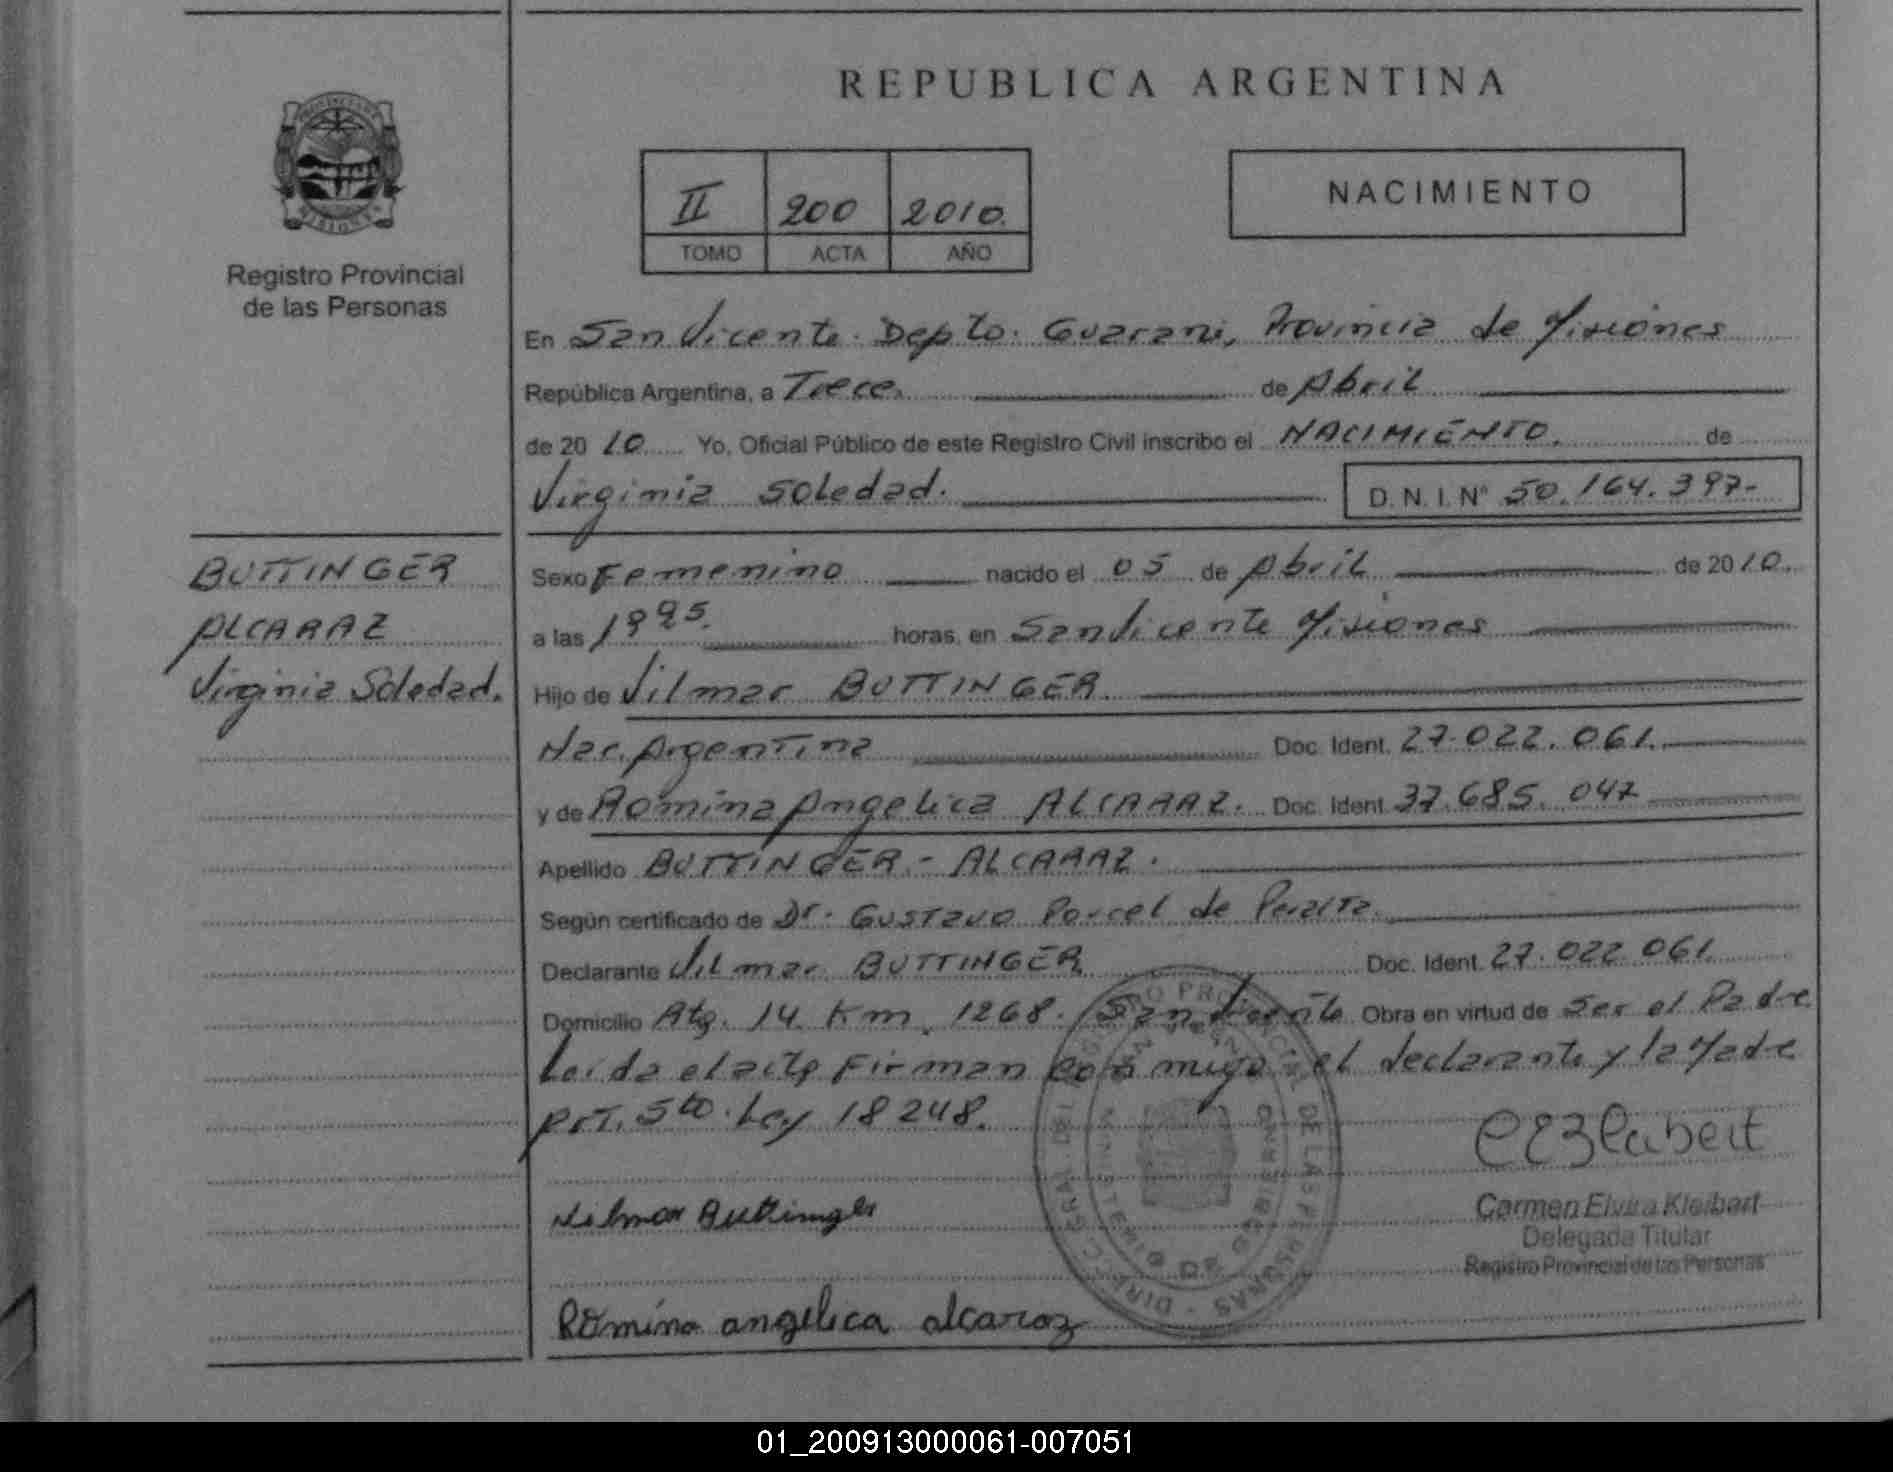 REPUBLICA ARGENTINA
II 200 2010.
TOMO ACTA AÑO
NACIMIENTO
Registro Provincial
de las Personas
En San Vicente. Depto. Guarani, Provincia de Misiones
República Argentina, a Trece. de Abril
de 2010 Yo, Oficial Público de este Registro Civil inscribo el NACIMIENTO. de
Virginia Soledad. D.N.I.Nº 50.164.397-
BUTTINGER
ALCARAZ
Virginia Soledad.
Sexo Femenino nacido el 05 de Abril de 2010.
a las horas, en San Vicente Misiones
Hijo de Vilmar BUTTINGER.
Nac. Argentina Doc. Ident. 27.022.061.
y de Romina Angelica ALCARAZ. Doc. Ident. 37.685.047
Apellido BUTTINGER.- ALCARAZ.
Según certificado de Dr. Gustavo Porcel de Peralta
Declarante Vilmar BUTTINGER Doc. Ident. 27.022.061.
Domicilio 14 Km. 1268. San Vicente Obra en virtud de Ser el Padre
Leida el acta Firman conmigo el declarante y la Madre
Art. 5to. Ley 18248.
DIRECC. GRAL. DEL REGISTRO PROVINCIAL DE LAS PERSONAS
Vilmar Buttinger
Carmen Elvira Kleibert
Delegada Titular
Registro Provincial de las Personas
Romina angelica alcaraz
01_200913000061-007051